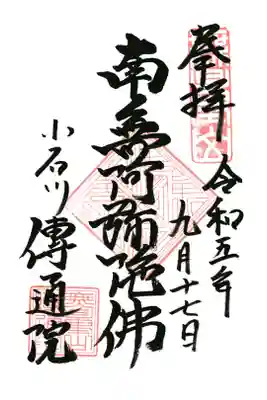 奉拝
令和五年
九月十七日
南無阿彌陀佛
小石川傳通院